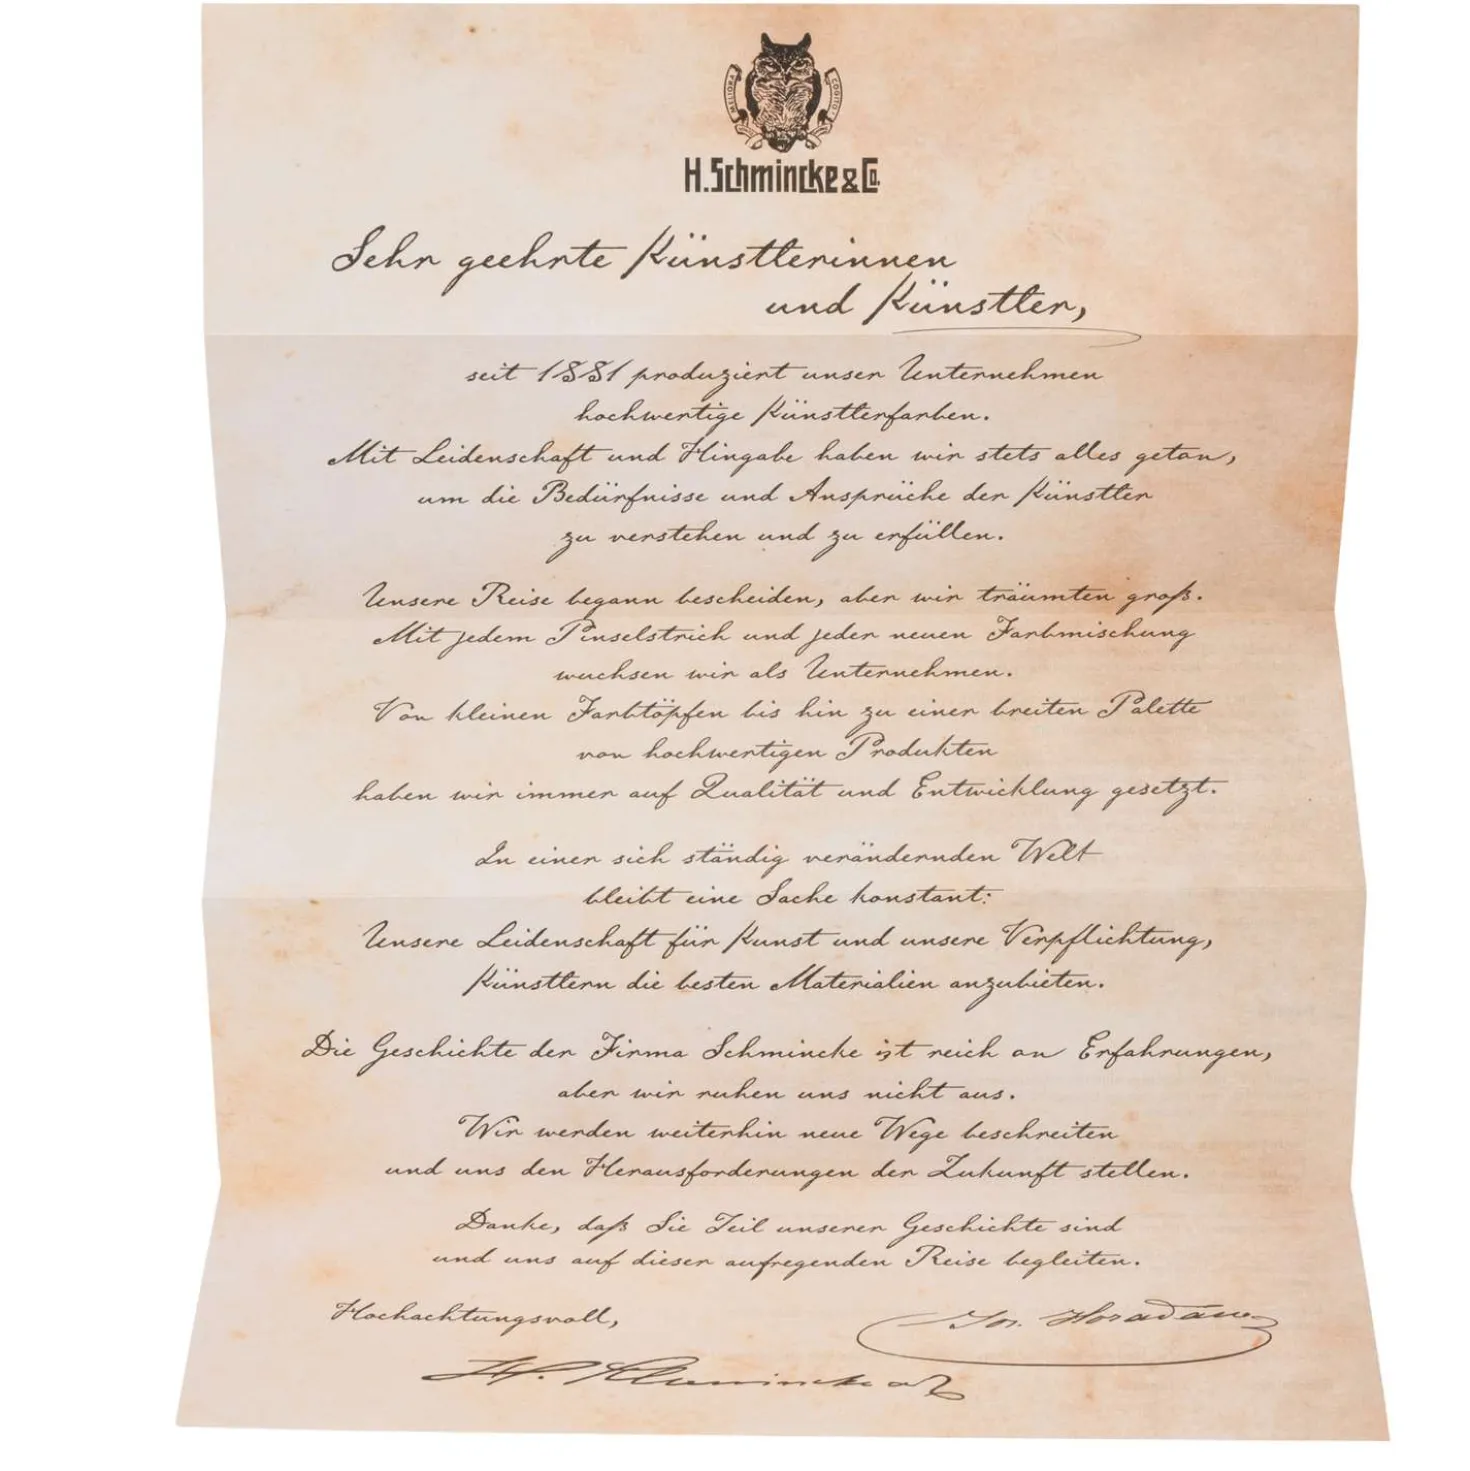 MELIORA COGITO
H. Schmincke & Co.
Sehr geehrte Künstlerinnen
und Künstler,
seit 1881 produziert unser Unternehmen
hochwertige Künstlerfarben.
Mit Leidenschaft und Hingabe haben wir stets alles getan,
um die Bedürfnisse und Ansprüche der Künstler
zu verstehen und zu erfüllen.
Unsere Reise begann bescheiden, aber wir träumten groß.
Mit jedem Pinselstrich und jeder neuen Farbmischung
wuchsen wir als Unternehmen.
Von kleinen Farbtöpfen bis hin zu einer breiten Palette
von hochwertigen Produkten
haben wir immer auf Qualität und Entwicklung gesetzt.
In einer sich ständig verändernden Welt
bleibt eine Sache konstant:
Unsere Leidenschaft für Kunst und unsere Verpflichtung,
Künstlern die besten Materialien anzubieten.
Die Geschichte der Firma Schmincke ist reich an Erfahrungen,
aber wir ruhen uns nicht aus.
Wir werden weiterhin neue Wege beschreiten
und uns den Herausforderungen der Zukunft stellen.
Danke, daß Sie Teil unserer Geschichte sind
und uns auf dieser aufregenden Reise begleiten.
Hochachtungsvoll,
Jos. Horadam
H. Schmincke